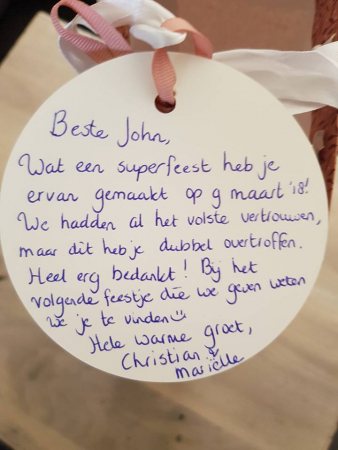 Beste John,
Wat een superfeest heb je
ervan gemaakt op 9 maart '18!
We hadden al het volste vertrouwen,
maar dit heb je dubbel overtroffen.
Heel erg bedankt! Bij het
volgende feestje die we geven weten
we je te vinden☺
Hele warme groet,
Christian &
Mariëlle